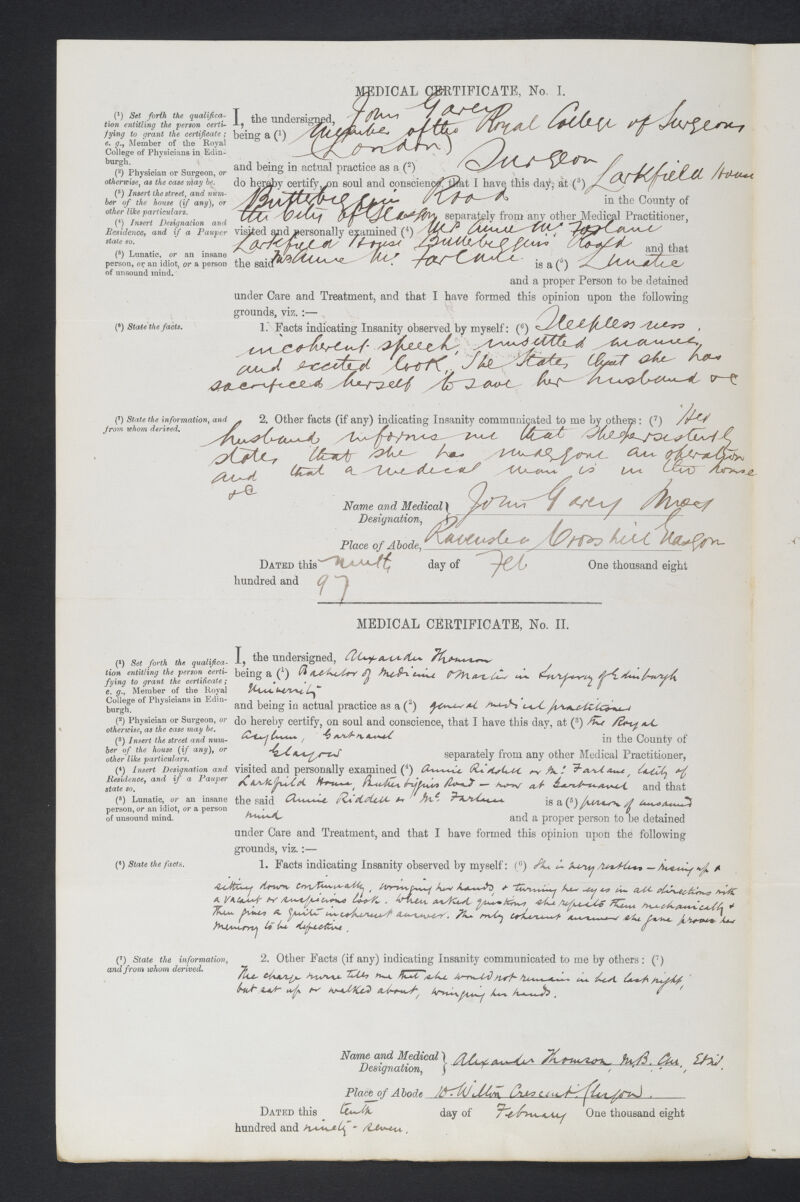 MEDICAL CERTIFICATE, No. I.
(¹) Set forth the qualifica-
tion entitling the person certi-
fying to grant the certificate;
e. g., Member of the Royal
College of Physicians in Edin-
burgh.
(²) Physician or Surgeon, or
otherwise, as the case may be.
(³) Insert the street, and num-
ber of the house (if any), or
other like particulars.
(⁴) Insert Designation and
Residence, and if a Pauper
state so.
(⁵) Lunatic, or an insane
person, or an idiot, or a person
of unsound mind.
I, the undersigned, John Garey
being a (¹) Member of the Royal College of Surgeons
(London)
and being in actual practice as a (²) Surgeon
do hereby certify, on soul and conscience, that I have this day, at (³) Larkfield House
Butterbiggins Road in the County of
the City of Glasgow separately from any other Medical Practitioner,
visited and personally examined (⁴) Mrs Annie McFarlane
Larkfield House Butterbiggins Road and that
the said Mrs Annie McFarlane is a (⁵) Lunatic
and a proper Person to be detained
under Care and Treatment, and that I have formed this opinion upon the following
grounds, viz. :—
(⁶) State the facts.
1. Facts indicating Insanity observed by myself: (⁶) Sleeplessness,
incoherent speech, unsettled manner,
and excited look. She states that she has
sacrificed herself to save her husband &c
(⁷) State the information, and
from whom derived.
2. Other facts (if any) indicating Insanity communicated to me by others: (⁷) Her
husband informs me that she persistently
states that she has undergone an operation
and that a medical man is in the house
&c
Name and Medical
Designation, John Garey MRCS
Place of Abode, Crosshill Glasgow
DATED this ninth day of Feb One thousand eight
hundred and 97
MEDICAL CERTIFICATE, No. II.
(¹) Set forth the qualifica-
tion entitling the person certi-
fying to grant the certificate;
e. g., Member of the Royal
College of Physicians in Edin-
burgh.
(²) Physician or Surgeon, or
otherwise, as the case may be.
(³) Insert the street and num-
ber of the house (if any), or
other like particulars.
(⁴) Insert Designation and
Residence, and if a Pauper
state so.
(⁵) Lunatic, or an insane
person, or an idiot, or a person
of unsound mind.
I, the undersigned, Alexander Thomson
being a (¹) Bachelor of Medicine & Master in Surgery of Edinburgh
University
and being in actual practice as a (²) general medical practitioner
do hereby certify, on soul and conscience, that I have this day, at (³) the Royal
Asylum, Gartnavel in the County of
Glasgow separately from any other Medical Practitioner,
visited and personally examined (⁴) Annie Riddell or McFarlane, lately of
Larkfield House, Butterbiggins Road — now at Gartnavel and that
the said Annie Riddell or McFarlane is a (⁵) person of unsound
mind and a proper person to be detained
under Care and Treatment, and that I have formed this opinion upon the following
grounds, viz. :—
(⁶) State the facts.
1. Facts indicating Insanity observed by myself: (⁶) She is very restless — rising up &
sitting down continually, wringing her hands, & turning her eyes in all directions with
a vacant or suspicious look. When asked questions, she repeats them mechanically &
then gives a quite incoherent answer. The only coherent answer she gave proves her
memory to be defective.
(⁷) State the information,
and from whom derived.
2. Other Facts (if any) indicating Insanity communicated to me by others: (⁷)
The charge nurse tells me that she would not remain in bed last night,
but sat up or walked about, wringing her hands.
Name and Medical
Designation, Alexander Thomson, M.B. C.M., Edin.
Place of Abode 10. Wilton Crescent. Glasgow.
DATED this tenth day of February One thousand eight
hundred and ninety-seven.